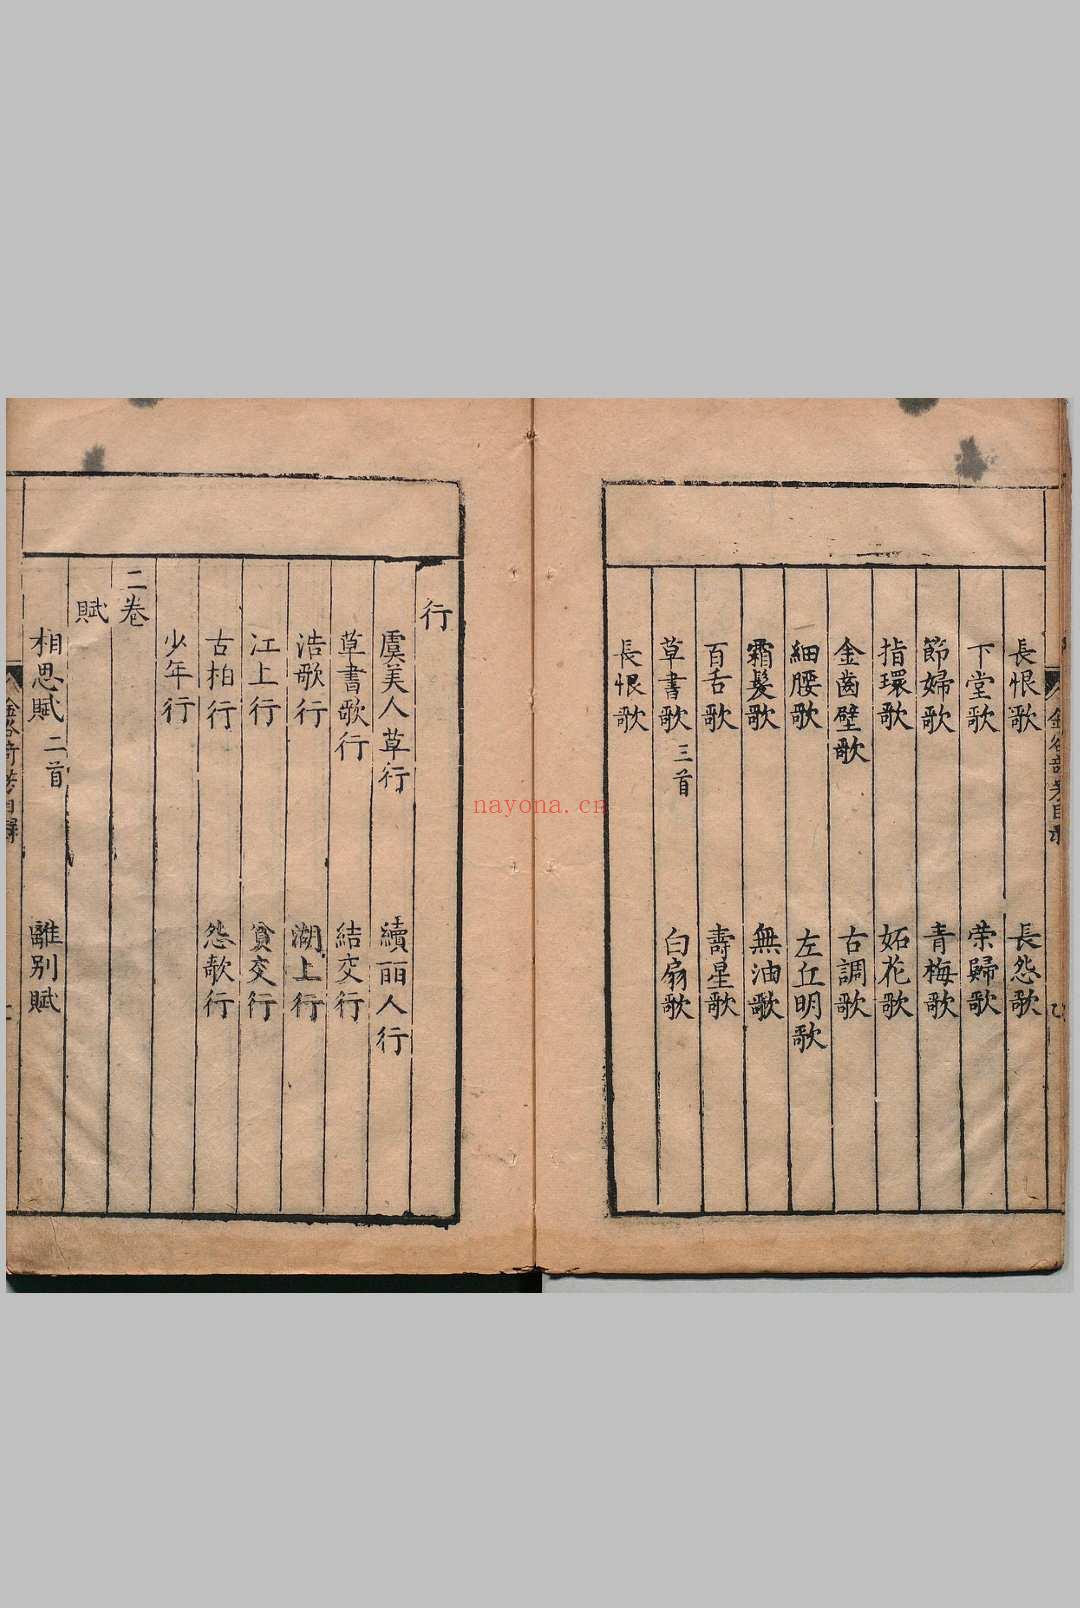 長恨歌 長怨歌
下堂歌 荣歸歌
節婦歌 青梅歌
指環歌 妬花歌
金齒壁歌 古調歌
細腰歌 左丘明歌
霜髪歌 無油歌
百舌歌 壽星歌
草書歌三首 白扇歌
長恨歌
行
虞美人草行 續丽人行
草書歌行 結交行
浩歌行 湖上行
江上行 貧交行
古柏行 怨歌行
少年行
二卷
賦
相思賦二首 離别賦
nayona.cn